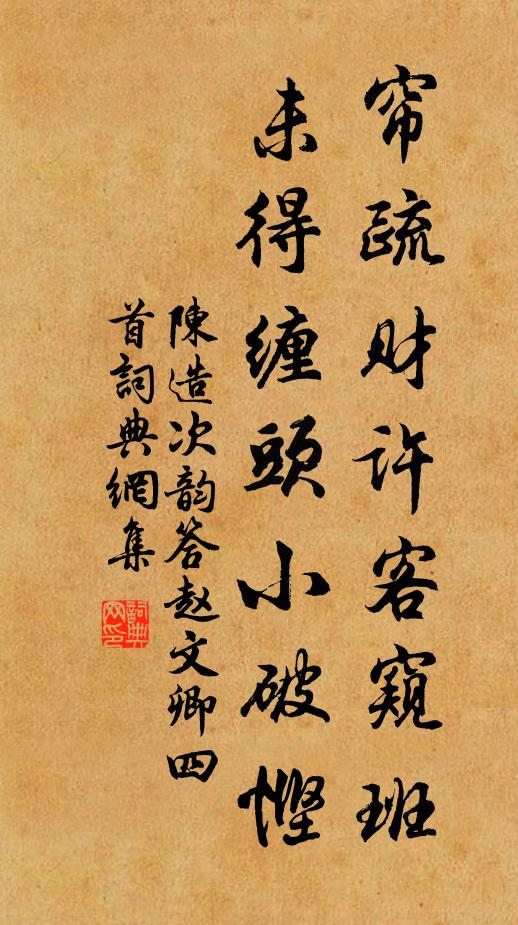 帘疏财许客窥班
未得缠頭小破悭
陳造次韵答赵文卿四
首詞典網集
詞典
网印